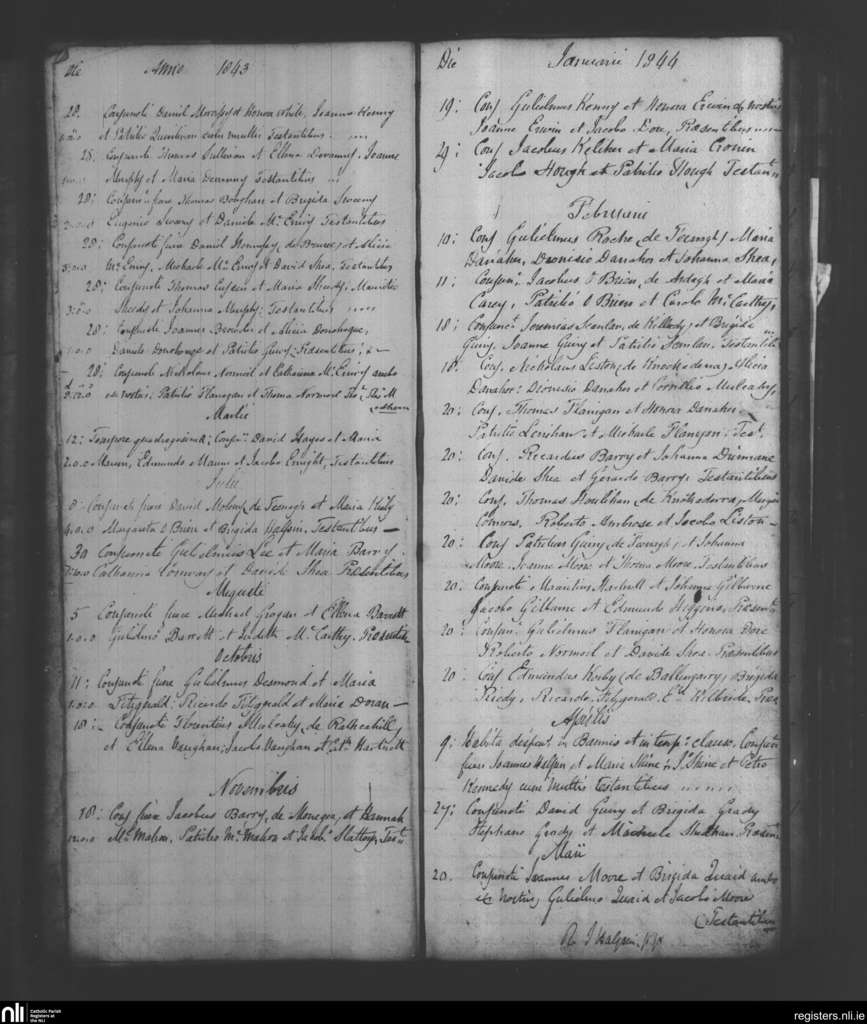 Die Anno 1843
28. Conjuncti Daniel Morassy et Honora White, Joanne Kenny
et Patritio Quinlivan cum multis Testantibus.
28. Conjuncti Thomas Sullivan et Ellena Joanne
Murphy et Maria Testantibus
28: Conjuncti fuere Thomas Boughan et Brigida Sweeny
Eugenio Sweeny et Daniele Mc Eniry Testantibus
28: Conjuncti fuere Daniel Hennessy, de Bruree, et Alicia
Mc Eniry, Michaele Mc Eniry et David Shea, Testantibus
28: Conjuncti Thomas et Maria Sheedy, Mauritio
3:0:0 Sheedy et Johanna Murphy: Testantibus
28: Conjuncti Joannes et Alicia Donohogue,
1.0.0 Daniele Donohogue et Patritio Guiry: Præsentibus, &
28: Conjuncti Nicholaus Normoil et Catharina Mc Eniry ambo
ex nostris, Patritio Flanagan et Thoma Normoil
Martii
12: Tempore quadragesimæ; Conjn. David Hayes et Maria
2.0.0 Maun, Edmundo Maun et Jacobo Enright, Testantibus
Julii
8 Conjuncti fuere David Molony de Feenagh et Maria Kiely
4.0.0 Margarita O Brien et Brigida Halpin, Testantibus —
30 Conjuncti Gulielmus Lee et Maria Barry
Catharina Conway et David Shea Præsentibus
Augusti
5 Conjuncti fuere Michael Grogan et Ellena Barrett
1.0.0 Gulielmo Barrett et Judith Mc Carthy. Præsentib
Octobris
11: Conjuncti fuere Gulielmus Desmond et Maria
1.0.0 Fitzgerald: Ricardo Fitzgerald et Maria Doran —
18: Conjuncti Florentius Mulcahy, de Rathcahill,
et Ellena Vaughan; Jacobo Vaughan et Cath. Hartnett
Novembris
18: Conj fuere Jacobus Barry, de Monegea, et Hannah
Mc Mahon, Patritio Mc Mahon et Jacobo Slattery, Test
Die Januarii 1844
19: Conj Gulielmus Kenny et Honora Erwin de nostris
Joanne Erwin et Jacobo Dore, Præsentibus
29: Conj Jacobus Kelcher et Maria Cronin
Jacobo Hough et Patritio Hough Testant
Februarii
10: Conj Gulielmus Roche, de Feenagh, Maria
Danaher, Dionisio Danaher et Johanna Shea,
11: Conjun: Jacobus O Brien, de Ardagh et Maria
Carey, Patritio O Brien et Carolo Mc Carthy,
18: Conjunct Jeremias Scanlan, de Killeedy, et Brigida
Guiry, Joanne Guiry et Patritio Scanlan. Testantib
18. Conj. Nicholaus Liston, de Knockaderry, Alicia
Danaher: Dionisio Danaher et Cornelio Mulcahy,
20: Conj. Thomas Flanigan et Honora Danaher
Patritio Lenihan et Michaele Flanigan: Test.
20: Conj. Ricardus Barry et Johanna Drinnane
Davide Shea et Gerardo Barry: Testantibus
20: Conj. Thomas Houlihan, de Knockaderra,
Connors. Roberto Ambrose et Jacobo Liston —
20: Conj Patritius Guiry, de Feenagh, et Johanna
Moore. Joanne Moore et Thoma Moore. Testantibus
20: Conjuncti Mauritius Hartnett et Johanna Gilburne
Jacobo Gilburne et Edmundo Higgins, Præsent
20: Conjun. Gulielmus Flanigan et Honora Dore
Roberto Normoil et Davide Shea. Præsentibus
20: Conj Edmundus Kirby (de Ballingarry, Brigida
Riedy, Ricardo Fitzgerald, Ed Kilbride. Præs
Aprilis
9: Habita dispens. in Bannis et in temp: clauso. Conjuncti
fuere Joannes Halpin et Maria Shine; Jo Shine et Petro
Kennedy cum multis Testantibus
27: Conjuncti David Guiry et Brigida Grady
Stephano Grady et Michaele Sheehan. Præsen
Maii
20. Conjuncti Joannes Moore et Brigida Quaid ambo
ex nostris, Gulielmo Quaid et Jacobo Moore
Testantibus
J Halpin, P.P.
nli
Catholic Parish
Registers at
the NLI
registers.nli.ie